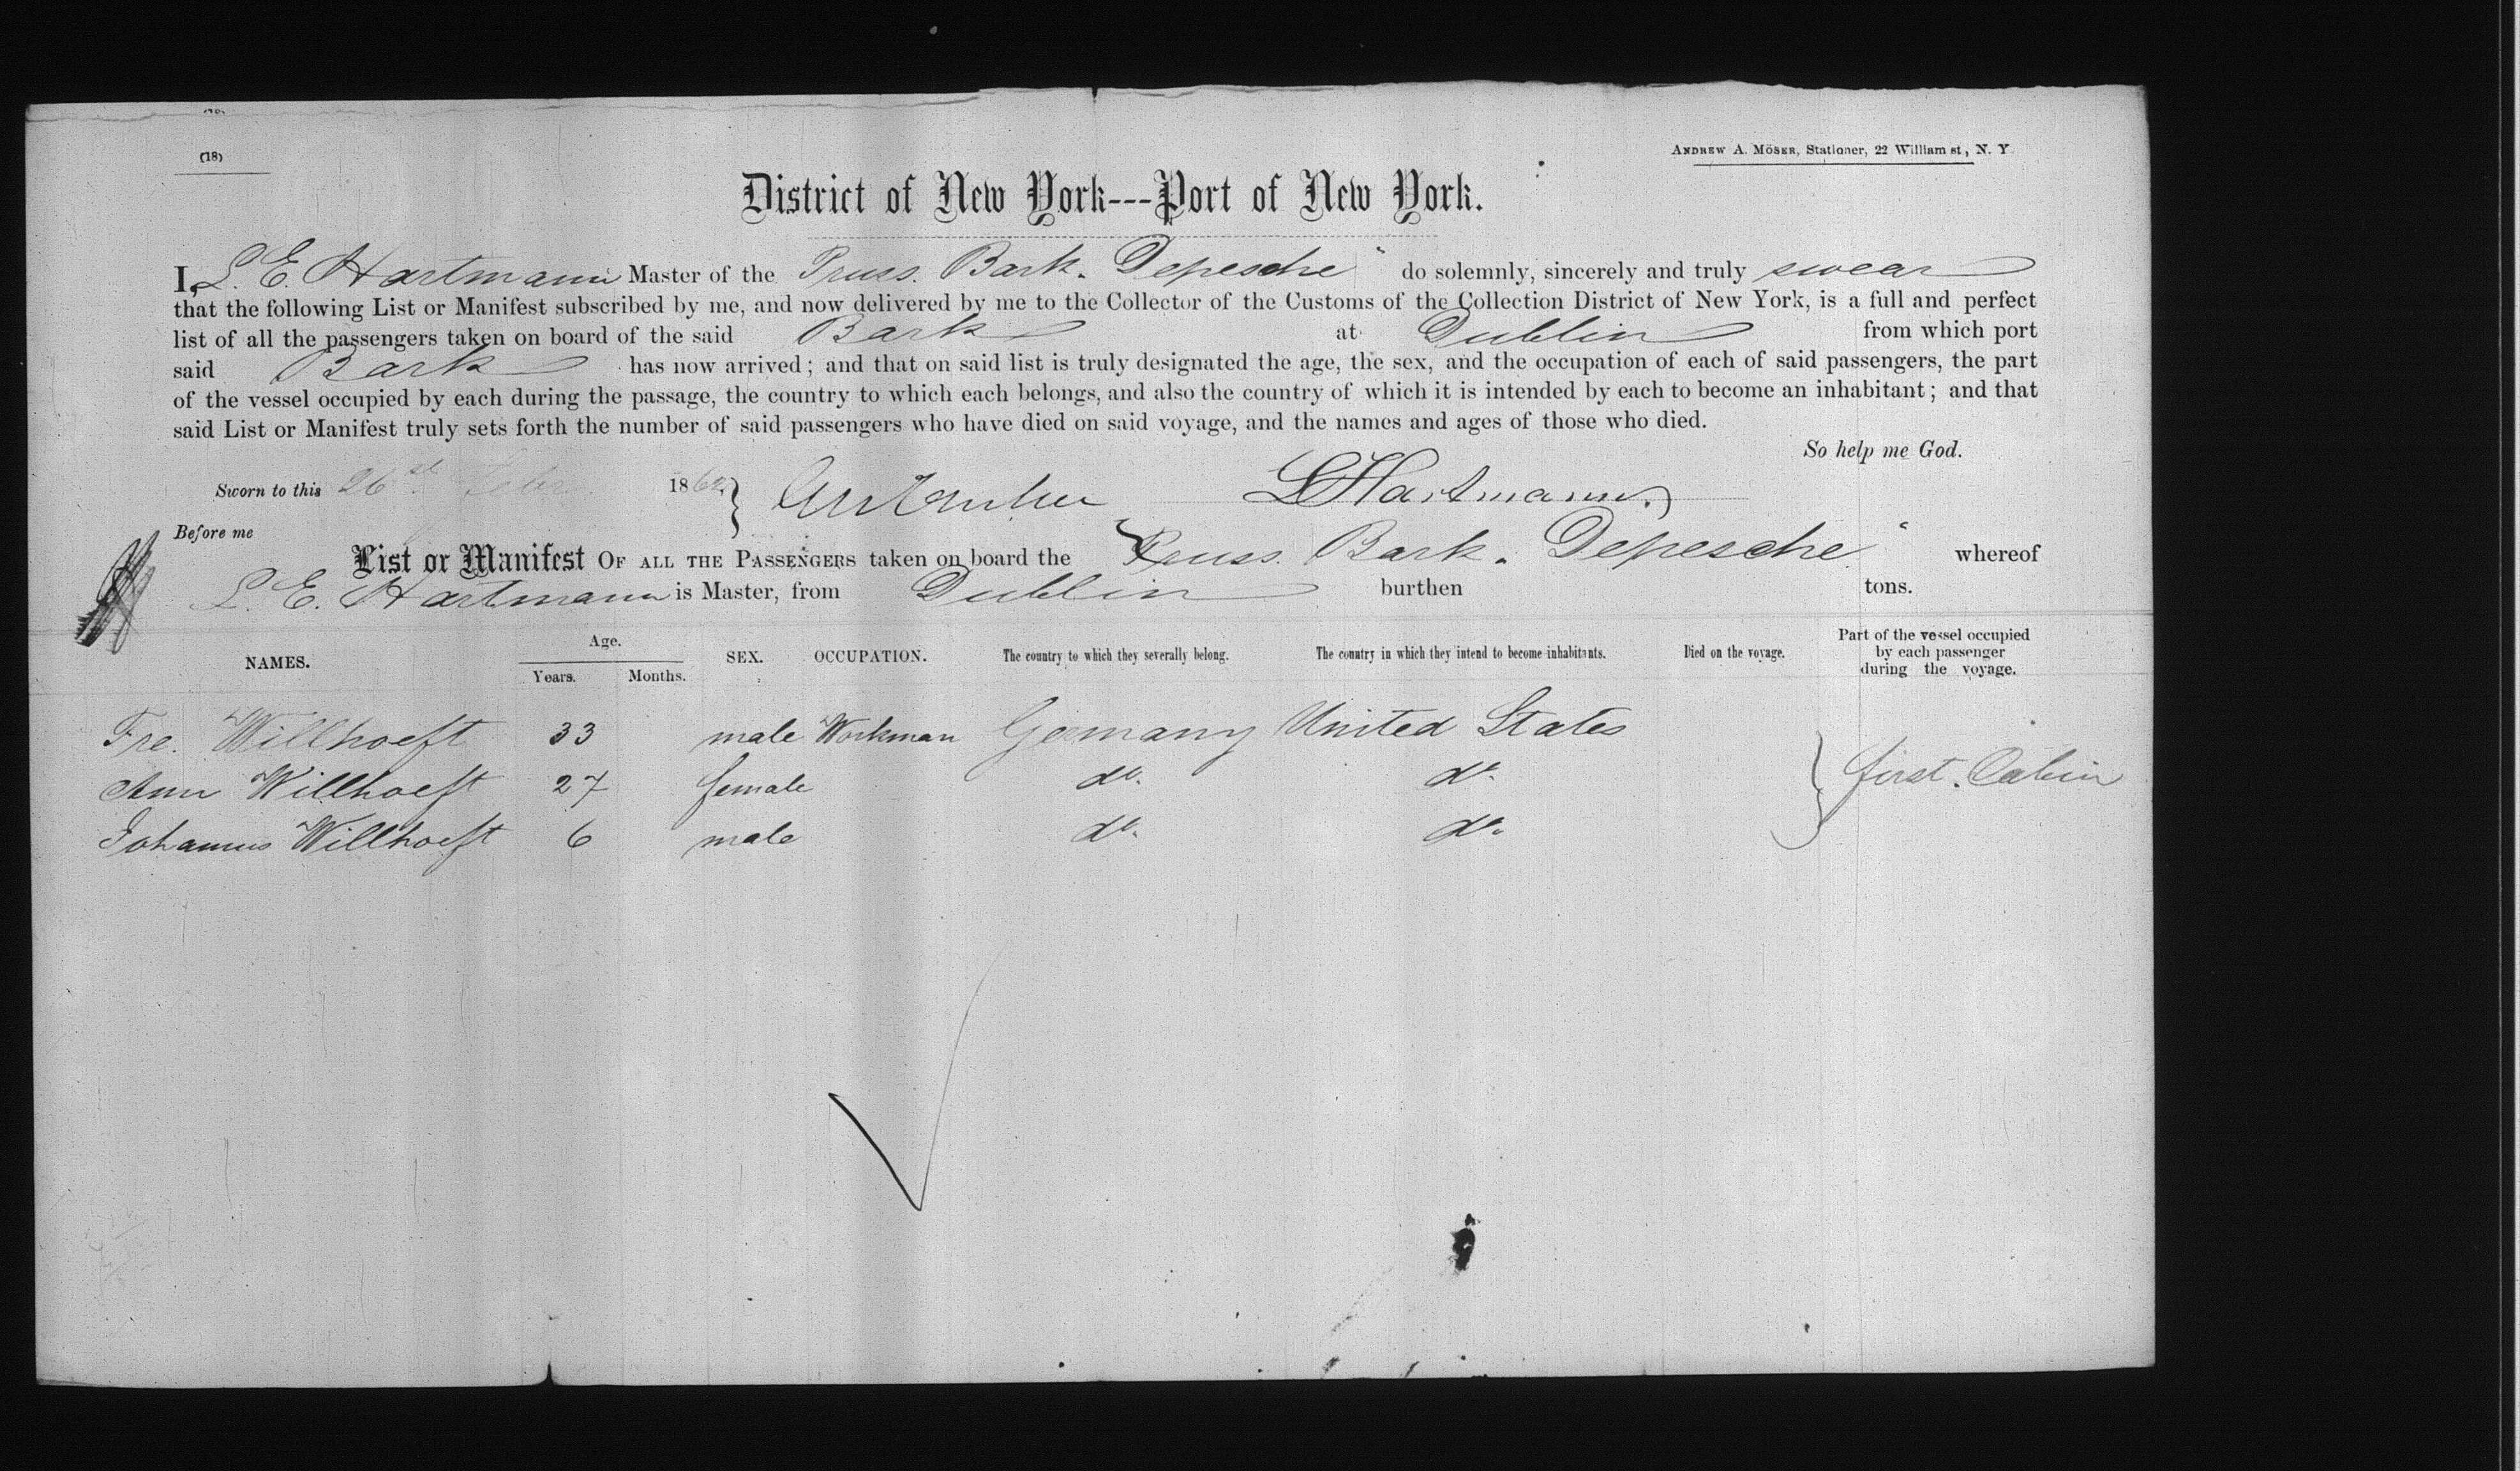 (18)
ANDREW A. MÖSER, Stationer, 22 William st., N. Y.
District of New York---Port of New York.
I, L. E. Hartmann Master of the Pruss. Bark "Depesche" do solemnly, sincerely and truly swear
that the following List or Manifest subscribed by me, and now delivered by me to the Collector of the Customs of the Collection District of New York, is a full and perfect
list of all the passengers taken on board of the said Bark at Dublin from which port
said Bark has now arrived; and that on said list is truly designated the age, the sex, and the occupation of each of said passengers, the part
of the vessel occupied by each during the passage, the country to which each belongs, and also the country of which it is intended by each to become an inhabitant; and that
said List or Manifest truly sets forth the number of said passengers who have died on said voyage, and the names and ages of those who died.
So help me God.
Sworn to this 26st Febr. 1862 LHartmann
Before me
List or Manifest OF ALL THE PASSENGERS taken on board the Pruss. Bark "Depesche" whereof
L. E. Hartmann is Master, from Dublin burthen tons.
NAMES. Age. Years. Months. SEX. OCCUPATION. The country to which they severally belong. The country in which they intend to become inhabitants. Died on the voyage. Part of the vessel occupied by each passenger during the voyage.
Fre. Willhoeft 33 male Workman Germany United States
Ann Willhoeft 27 female do. do. first Cabin
Johannes Willhoeft 6 male do. do.